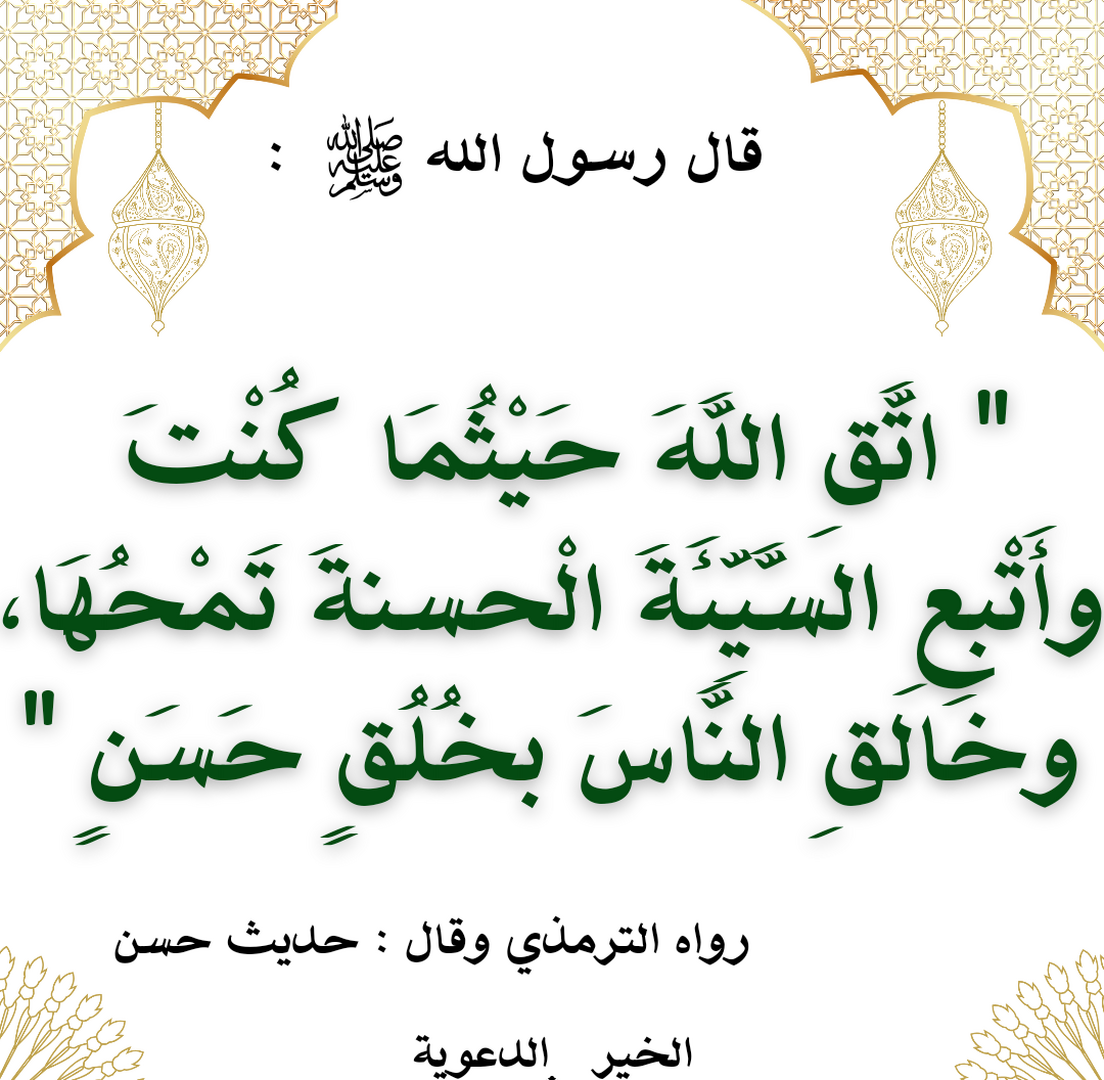 قال رسول الله ﷺ :
" اتَّقِ اللَّهَ حَيْثُمَا كُنْتَ
وأَتْبعِ السَّيِّئَةَ الْحسنةَ تَمْحُهَا،
وخَالَقِ النَّاسَ بخُلُقٍ حَسَنٍ "
رواه الترمذي وقال : حديث حسن
الخير الدعوية